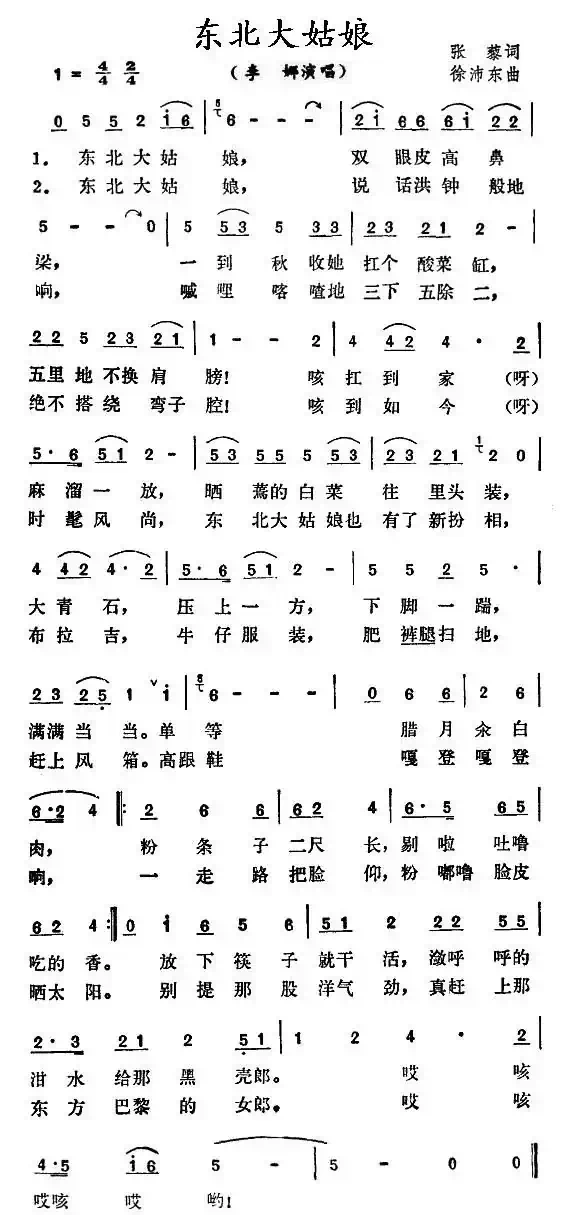 东北大姑娘
张藜词
1= 4/4 2/4 (李娜演唱) 徐沛东曲
0 5 5 2 i6 | 6 - - - | 2i 66 6i 22 |
1. 东北大姑娘, 双眼皮高鼻
2. 东北大姑娘, 说话洪钟般地
5 - - 0 | 5 53 5 33 | 23 21 2 - |
梁, 一到秋收她扛个酸菜缸,
响, 喊哩喀喳地三下五除二,
22 5 23 21 | 1 - - 2 | 4 42 4 · 2 |
五里地不换肩膀! 咳扛到家(呀)
绝不搭绕弯子腔! 咳到如今(呀)
5·6 51 2 - | 53 55 5 53 | 23 21 2 0 |
麻溜一放, 晒蔫的白菜往里头装,
时髦风尚, 东北大姑娘也有了新扮相,
4 42 4·2 | 5·6 51 2 - | 5 5 2 5 · |
大青石, 压上一方, 下脚一踹,
布拉吉, 牛仔服装, 肥裤腿扫地,
23 25 1 i | 6 - - - | 0 6 6 | 2 6 |
满满当当。单等 腊月汆白
赶上风箱。高跟鞋 嘎登嘎登
6·2 4 ‖: 2 6 6 | 62 4 | 6·5 65 |
肉, 粉条子二尺长, 剔啦吐噜
响, 一走路把脸仰, 粉嘟噜脸皮
62 4 :‖ 0 i 6 5 6 | 51 2 22 55 |
吃的香。放下筷子就干活, 潋呼呼的
晒太阳。别提那股洋气劲, 真赶上那
2·3 21 2 51 | 1 2 4 · 2 |
泔水给那黑壳郎。 哎咳
东方巴黎的女郎。 哎咳
4·5 i6 5 - | 5 - 0 0 ‖
哎咳哎哟!